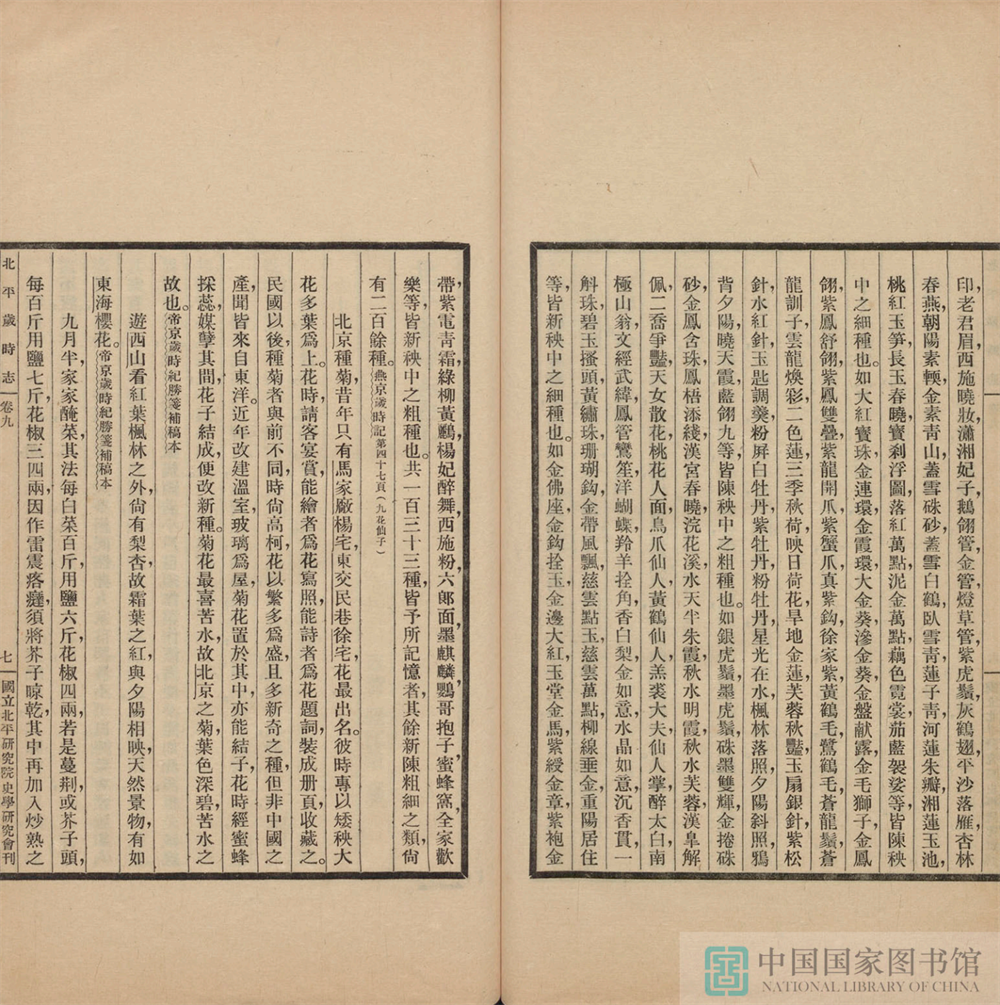 印老君眉,西施曉妝,瀟湘妃子,鵝翎管,金管,燈草管,紫虎鬚,灰鶴翅,平沙落雁,杏林
春燕,朝陽素,輭金素,青山蓋雪,硃砂蓋雪,白鶴臥雪,青蓮子,青河蓮,朱瓣湘蓮,玉池
桃紅,玉笋長,玉春曉,寶剎浮圖,落紅萬點,泥金萬點,藕色霓裳,茄藍袈裟等,皆陳秧
中之細種也。如大紅寶珠,金連環,金霞環,大金葵,滲金葵,金盤献露,金毛獅子,金鳳
翎,紫鳳舒翎,紫鳳雙疊,紫龍開爪,紫蟹爪,真紫鈎,徐家紫,黃鶴毛,鷺鶴毛,蒼龍鬚,蒼
龍訓子,雲龍煥彩,二色蓮,三季秋荷,映日荷花,旱地金蓮,芙蓉秋豔,玉扇銀針,紫松
針,水紅針,玉匙調羹,粉屏白牡丹,紫牡丹,粉牡丹,星光在水,楓林落照,夕陽斜照,鴉
背夕陽,曉天霞,藍翎九等,皆陳秧中之粗種也。如銀虎鬚,墨虎鬚,硃墨雙輝,金捲硃
砂,金鳳含珠,鳳梧添綫,漢宮春曉,浣花溪水,天半朱霞,秋水明霞,秋水芙蓉,漢皐解
佩,二喬爭豔,天女散花,桃花人面,鳥爪仙人,黃鶴仙人,羔裘大夫,仙人掌,醉太白,南
極山翁,文經武緯,鳳管鸞笙,洋蝴蝶,羚羊拴角,香白梨,金如意,水晶如意,沉香貫,一
斛珠,碧玉搔頭,黃繡珠,珊瑚鈎,金帶風飄,慈雲點玉,慈雲萬點,柳線垂金,重陽居住
等,皆新秧中之細種也。如金佛座,金鈎拴玉,金邊大紅,玉堂金馬,紫綬金章,紫袍金
帶,紫電青霜,綠柳黃鸝,楊妃醉舞,西施粉,六郎面,墨麒麟,鸚哥抱子,蜜蜂窩,全家歡
樂等,皆新秧中之粗種也。共一百三十三種,皆予所記憶者,其餘新陳粗細之類,尙
有二百餘種。燕京歲時記第四十七頁(九花仙子)
北京種菊,昔年只有馬家廠楊宅,東交民巷徐宅,花最出名。彼時專以矮秧大
花多葉爲上。花時請客宴賞,能繪者爲花寫照,能詩者爲花題詞,裝成册頁,收藏之。
民國以後,種菊者與前不同,時尙高柯,花以繁多爲盛,且多新奇之種,但非中國之
產,聞皆來自東洋。近年改建溫室,玻璃爲屋,菊花置於其中,亦能結子,花時經蜜蜂
採蕊,媒孽其間,花子結成,便改新種。菊花最喜苦水,故北京之菊,葉色深碧,苦水之
故也。帝京歲時紀勝箋補稿本
遊西山看紅葉,楓林之外,尙有梨杏,故霜葉之紅,與夕陽相映,天然景物,有如
東海櫻花。帝京歲時紀勝箋補稿本
九月半,家家醃菜,其法每白菜百斤,用鹽六斤,花椒四兩,若是蔓荆,或芥子頭,
每百斤用鹽七斤,花椒三四兩,因作雷震疙瘩,須將芥子晾乾,其中再加入炒熟之
北平歲時志 卷九 七 國立北平研究院史學研究會刊
中国国家图书馆
NATIONAL LIBRARY OF CHINA